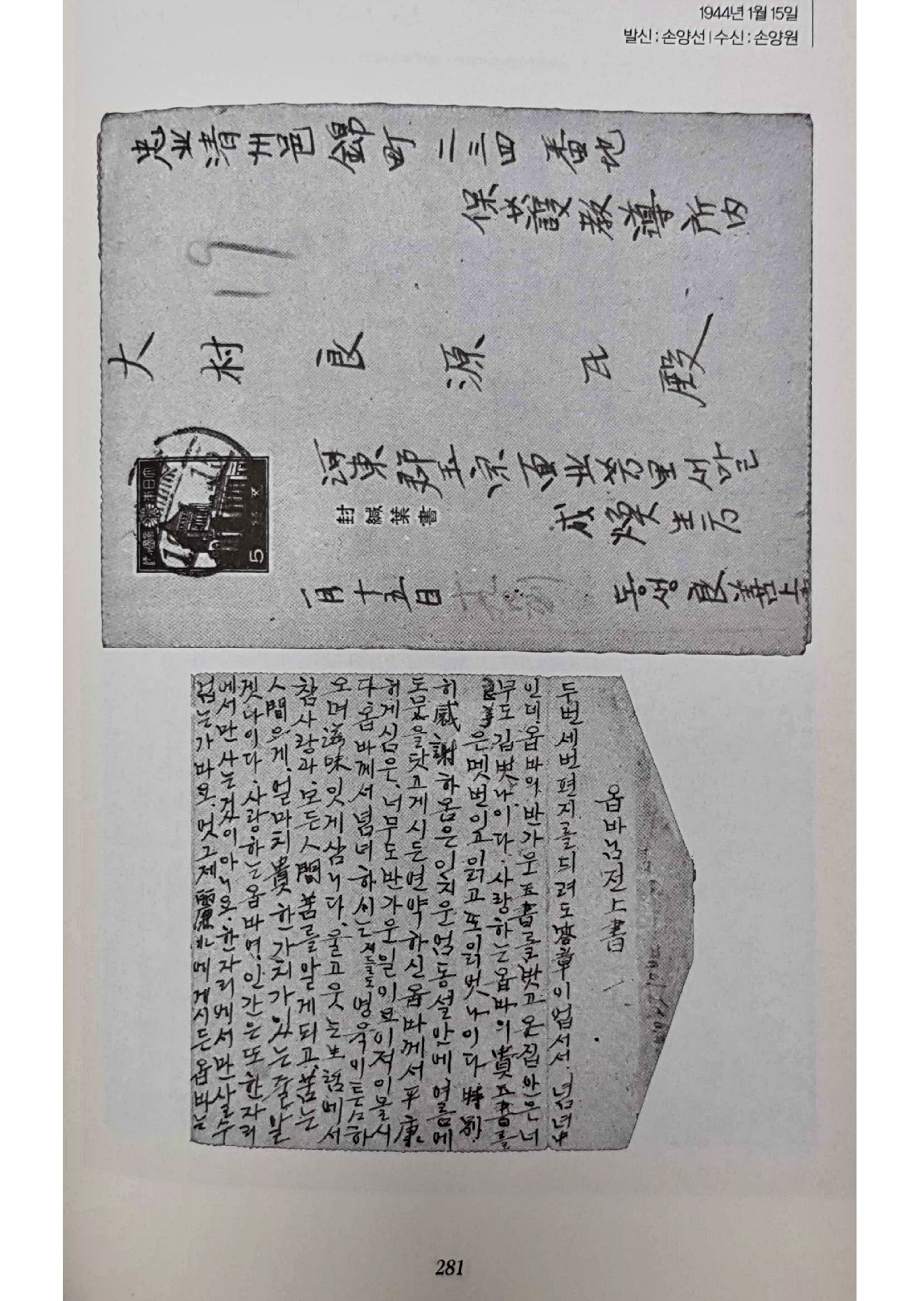 1944년 1월 15일
발신 : 손양선 | 수신 : 손양원
忠北淸州邑錦町二三四番地
保護敎導所內
大村良源氏殿
河東郡玉宗面北芳里서말
成煥生方
封緘葉書
5
一月十五日
동생良善上
옵바님전上書
두번세번편지를듸려도答章이업서서、념녀中
인데、옵바의반가운玉書를밧고온집안은너
무도깁벗나이다、사랑하는옵바의貴玉書를
은몟번이고읽고또읽엇나이다特別
히感謝하옴은인치운엄동설안에여름에
도문을닷고게시든연약하신옵바께서平康
허게심은、너무도반가운일이모이저이몰시
다옵바께서념녀하시는저들도명욱이듬하
오며滋味잇게삼니다、울고웃는生活에서
참사랑과、모든人間苦를알게되고、苦는
人間의게、얼마치貴한가치가잇는줄알
겟나이다、사랑하는옵바여、인간은또한자리
에서만사는것이아니요、한자리에서만살수
업는가바요、멋그제麗水에게시든옵바님
281